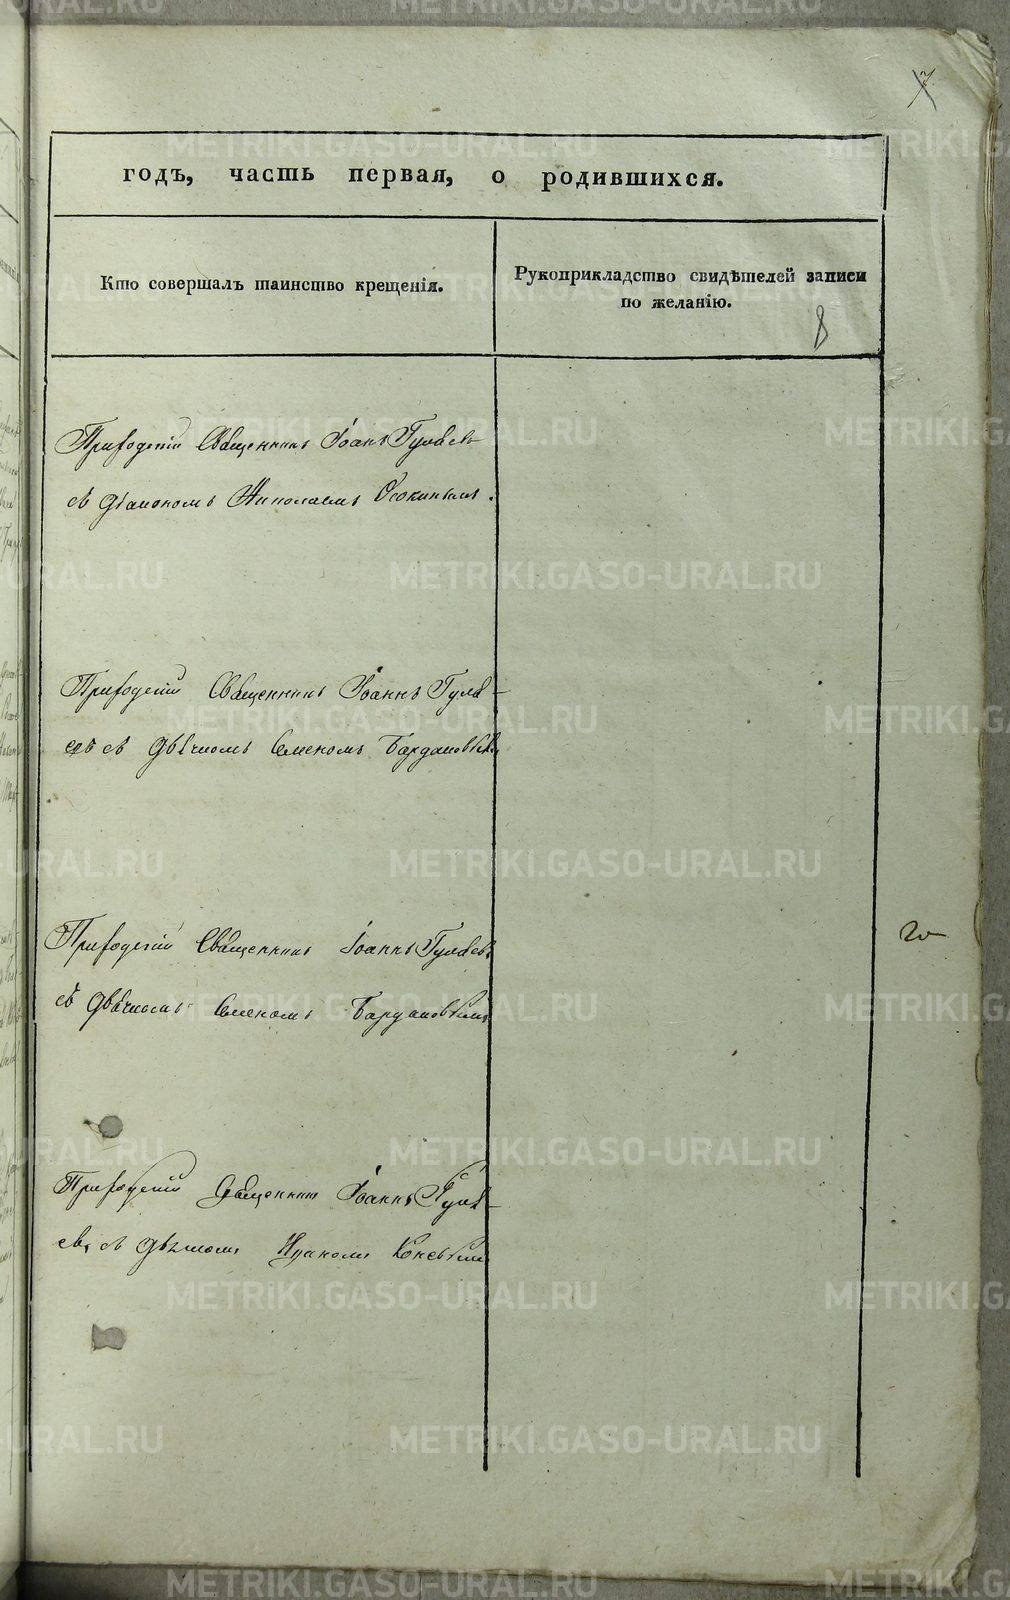 7
годъ, часть первая, о родившихся.
Кто совершалъ таинство крещенія.
Рукоприкладство свидѣтелей записи
по желанію.
8
Приходскій Священникъ Іоаннъ Гуляевъ
съ діакономъ Николаемъ
Приходскій Священникъ Іоаннъ Гуля-
евъ съ дьячкомъ Семеномъ
Приходскій Священникъ Іоаннъ Гуляевъ
съ дьячкомъ Семеномъ
Приходскій Священникъ Іоаннъ Гуля-
евъ съ дьячкомъ
METRIKI.GASO-URAL.RU